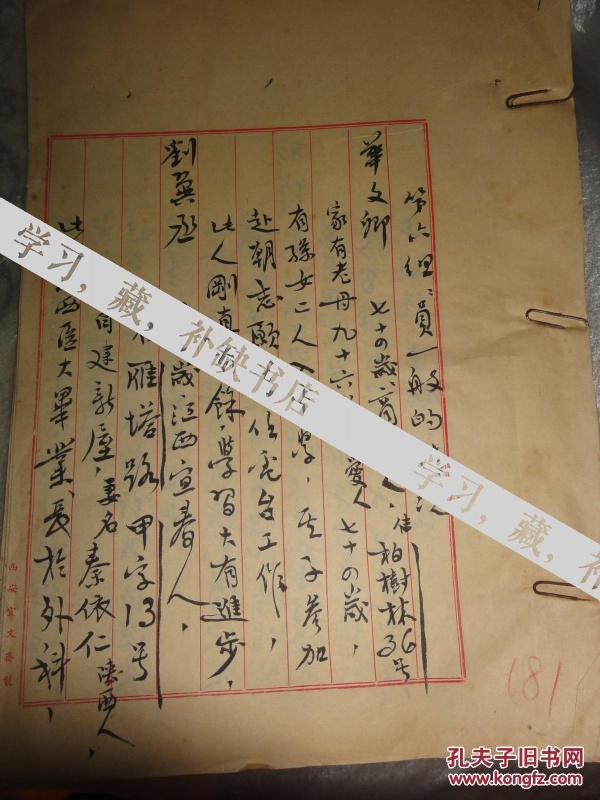 第六组组員一般的
華文卿 七十四歲 住柏樹林36号
家有老母九十六 愛人七十四歲，
有孫女二人 學，其子参加
赴朝志願 工作，
此人剛直 餘，學習大有進步，
劉 歲江西宜春人，
雁塔路甲字13号
自建新屋，妻名秦依仁陕西人，
西医大畢業，長於外科，
西安宜文斋製
181
学习，藏，补缺书店
学习，藏，补
孔夫子旧书网
www.kongfz.com